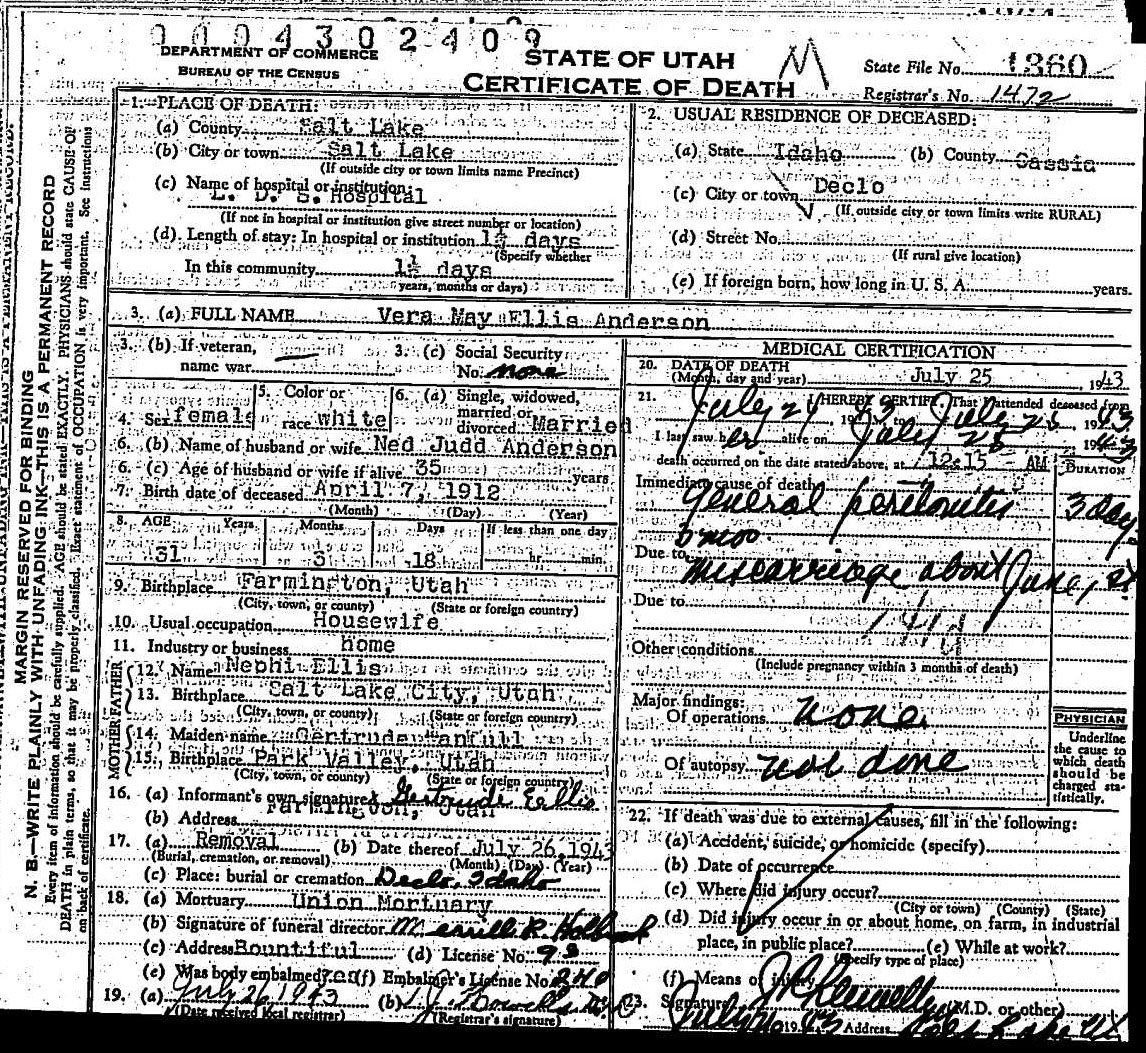 0004302409
DEPARTMENT OF COMMERCE
BUREAU OF THE CENSUS
STATE OF UTAH
CERTIFICATE OF DEATH
M
State File No. 1360
Registrar's No. 1472
MARGIN RESERVED FOR BINDING
N. B.—WRITE PLAINLY WITH UNFADING INK—THIS IS A PERMANENT RECORD
Every item of information should be carefully supplied. AGE should be stated EXACTLY. PHYSICIANS should state CAUSE OF
DEATH in plain terms, so that it may be properly classified. Exact statement of OCCUPATION is very important. See instructions
on back of certificate.
1. PLACE OF DEATH:
(a) County Salt Lake
(b) City or town Salt Lake
(If outside city or town limits name Precinct)
(c) Name of hospital or institution:
L. D. S. Hospital
(If not in hospital or institution give street number or location)
(d) Length of stay: In hospital or institution 1½ days
(Specify whether
In this community 1½ days
years, months or days)
2. USUAL RESIDENCE OF DECEASED:
(a) State Idaho (b) County Cassia
(c) City or town Declo
(If outside city or town limits write RURAL)
(d) Street No.
(If rural give location)
(e) If foreign born, how long in U. S. A. years.
3. (a) FULL NAME Vera May Ellis Anderson
3. (b) If veteran,
name war
3. (c) Social Security
No. none
4. Sex female
5. Color or
race white
6. (a) Single, widowed,
married or
divorced Married
6. (b) Name of husband or wife Ned Judd Anderson
6. (c) Age of husband or wife if alive 35 years
7. Birth date of deceased April 7, 1912
(Month) (Day) (Year)
8. AGE Years Months Days If less than one day
31 3 18 hr. min.
9. Birthplace Farmington, Utah
(City, town, or county) (State or foreign country)
10. Usual occupation Housewife
11. Industry or business home
FATHER
12. Name Nephi Ellis
13. Birthplace Salt Lake City, Utah
(City, town, or county) (State or foreign country)
MOTHER
14. Maiden name Gertrude
15. Birthplace Park Valley, Utah
(City, town, or county) (State or foreign country)
16. (a) Informant's own signature Gertrude Ellis
(b) Address Farmington, Utah
17. (a) Removal (b) Date thereof July 26, 1943
(Burial, cremation, or removal) (Month) (Day) (Year)
(c) Place: burial or cremation Declo, Idaho
18. (a) Mortuary Union Mortuary
(b) Signature of funeral director Merrill R. Holbrook
(c) Address Bountiful (d) License No. 98
(e) Was body embalmed? yes (f) Embalmer's License No. 240
19. (a) July 26, 1943 (b)
(Date received local registrar) (Registrar's signature)
MEDICAL CERTIFICATION
20. DATE OF DEATH
(Month, day and year) July 25, 1943
21. I HEREBY CERTIFY That I attended deceased from
July 24, 1943, July 25, 1943
I last saw her alive on July 25 1943
death occurred on the date stated above, at 12:15 AM
DURATION
Immediate cause of death
General peritonitis 3 days
3 moo.
Due to miscarriage about June, 1st
Due to
Other conditions
(Include pregnancy within 3 months of death)
Major findings:
Of operations none
Of autopsy not done
PHYSICIAN
Underline
the cause to
which death
should be
charged sta-
tistically.
22. If death was due to external causes, fill in the following:
(a) Accident, suicide, or homicide (specify)
(b) Date of occurrence
(c) Where did injury occur?
(City or town) (County) (State)
(d) Did injury occur in or about home, on farm, in industrial
place, in public place? (e) While at work?
(Specify type of place)
(f) Means of injury
23. Signature (M.D. or other)
July 1943 Address Salt Lake Ut